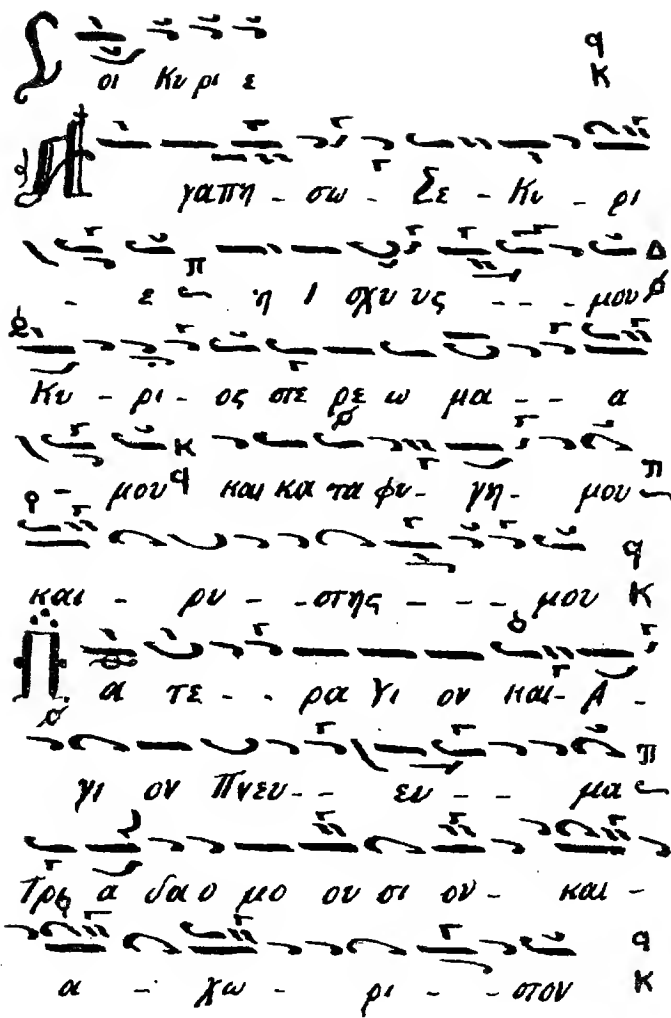 Σοι Κυ ρι ε
Α γαπη - σω - Σε - Κυ - ρι
- ε η Ι σχυ υς - - - μου
Κυ - ρι - ος στε ρε ω μα - - α
- μου και κα τα φυ - γη - μου
και - ρυ - - στης - - - μου
Π α τε - - ρα Υι ον και - Α -
γι ον Πνευ - - ευ - - μα
Τρι α δα ο μο ου σι ον - και -
α - χω - ρι - - στον